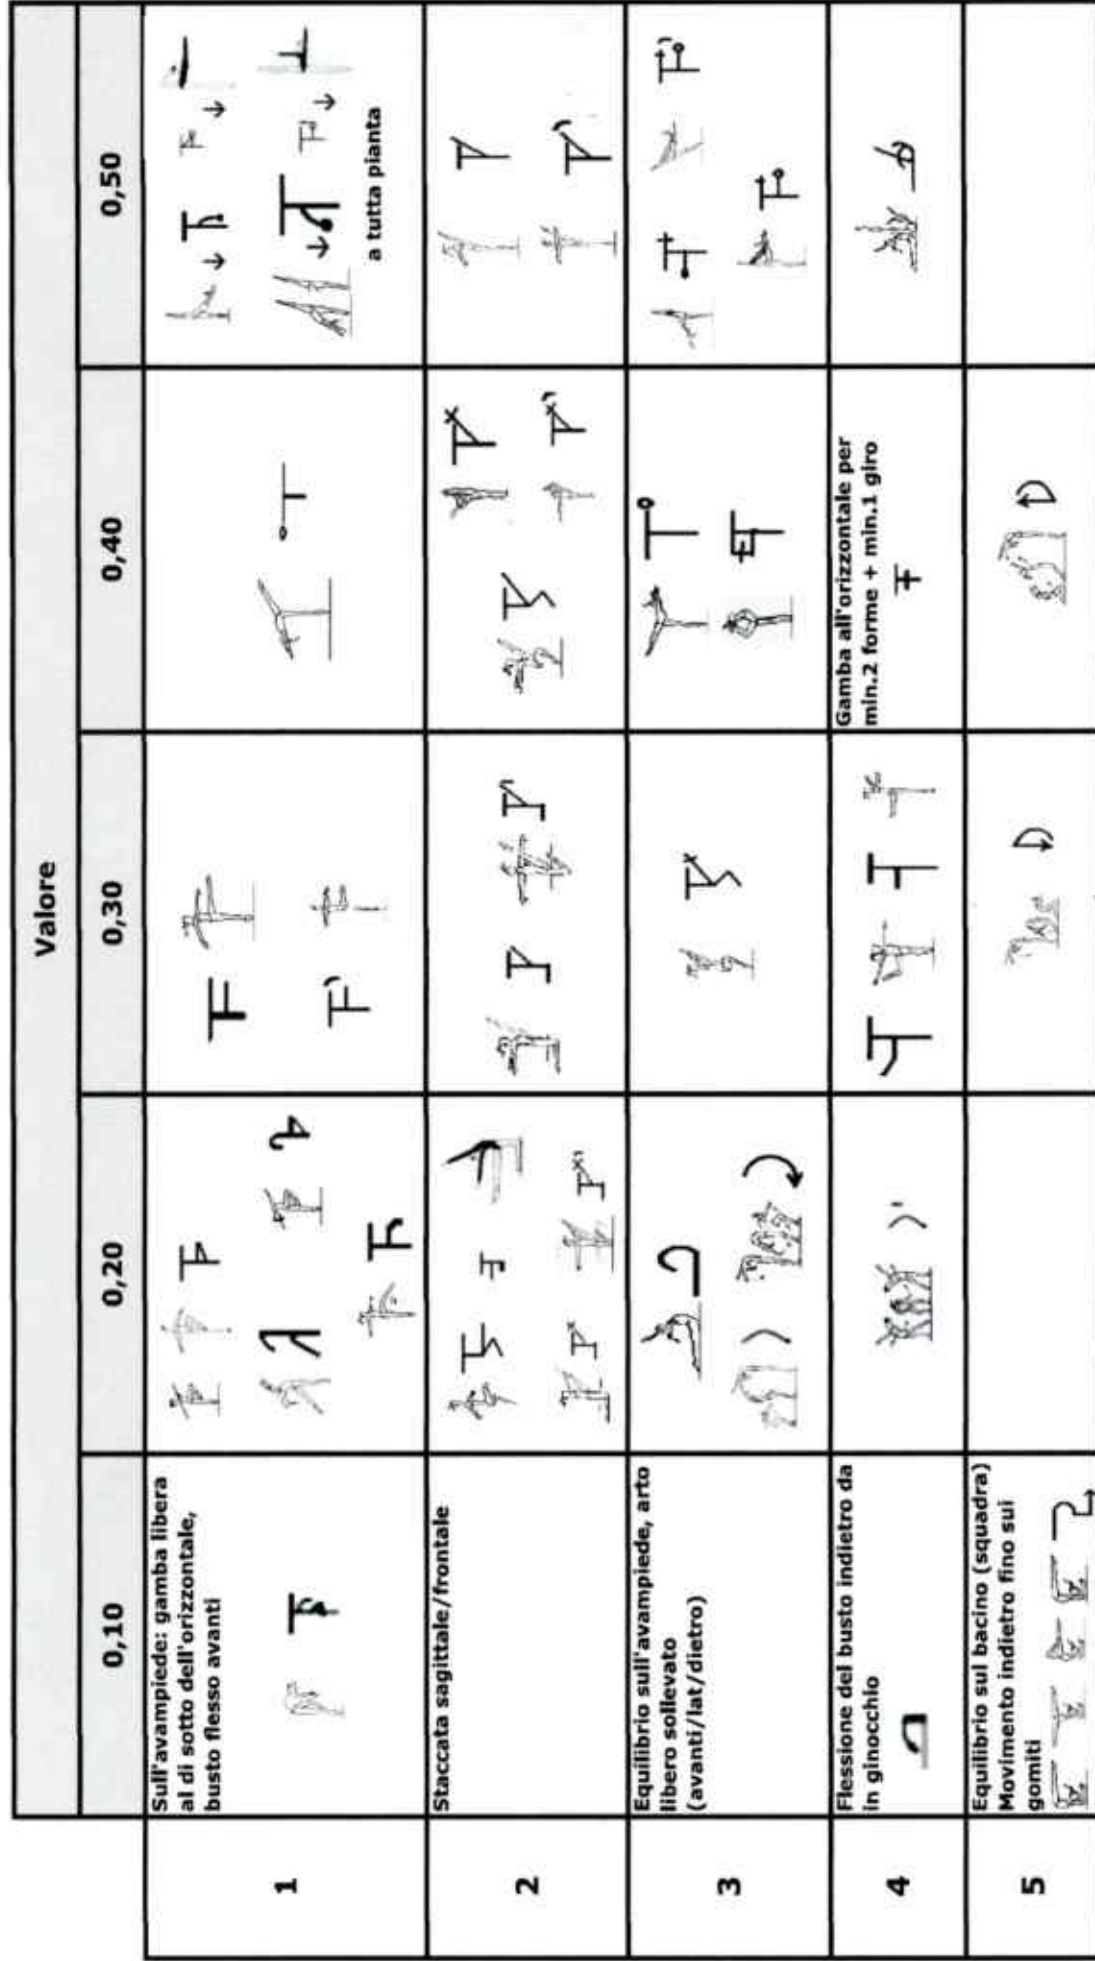 Valore
0,10
0,20
0,30
0,40
0,50
1
Sull'avampiede: gamba libera
al di sotto dell'orizzontale,
busto flesso avanti
a tutta pianta
2
Staccata sagittale/frontale
3
Equilibrio sull'avampiede, arto
libero sollevato
(avanti/lat/dietro)
4
Flessione del busto indietro da
in ginocchio
Gamba all'orizzontale per
min.2 forme + min.1 giro
5
Equilibrio sul bacino (squadra)
Movimento indietro fino sui
gomiti